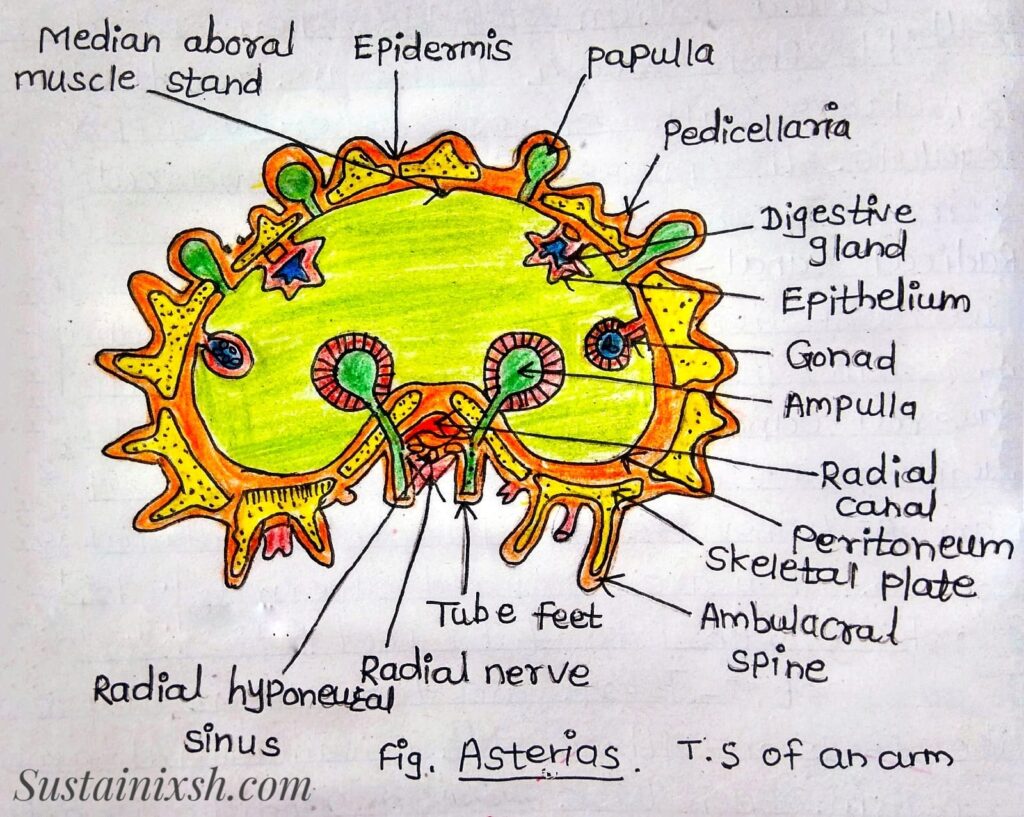 Median aboral
muscle stand
Epidermis
papulla
Pedicellaria
Digestive
gland
Epithelium
Gonad
Ampulla
Radial
canal
Peritoneum
Skeletal plate
Ambulacral
spine
Tube feet
Radial nerve
Radial hyponeutal
sinus
Fig. Asterias. T.S of an arm
Sustainixsh.com